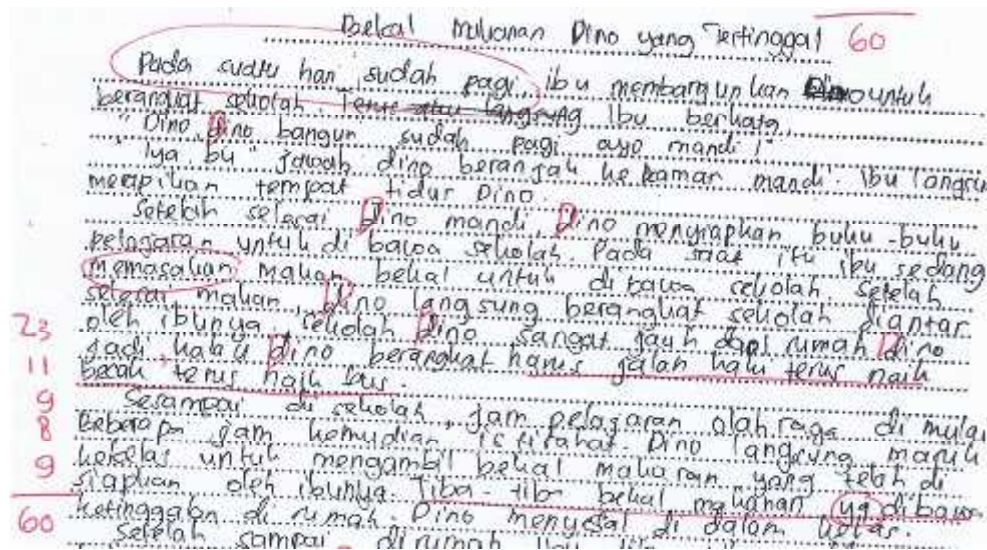 Bekal Makanan Dino yang Tertinggal 60
Pada suatu hari sudah pagi ibu membangunkan Dino untuk
berangkat sekolah. Terus langsung ibu berkata,
"Dino, dino bangun sudah pagi ayo mandi!"
"Iya, bu" jawab dino beranjak ke kamar mandi ibu langsun
merapikan tempat tidur Dino.
Setelah selesai dino mandi, Dino menyiapkan buku-buku
pelajaran untuk di bawa sekolah. Pada saat itu ibu sedang
memasakan makan bekal untuk dibawa sekolah. Setelah
selesai makan, dino langsung berangkat sekolah diantar
23 oleh ibunya, sekolah dino sangat jauh dari rumah dino
11 jadi, kalau dino berangkat harus jalan kaki terus naik
becak terus naik bus.
9 Sesampai di sekolah, jam pelajaran olah raga di mulai
8 Beberapa jam kemudian istirahat. Dino langsung masuk
9 kekelas untuk mengambil bekal makanan yang telah di
siapkan oleh ibunya. Tiba-tiba bekal makanan yg dibawa
60 ketinggalan di rumah. Dino menyesal di dalam kelas.
Setelah sampai dirumah ibu